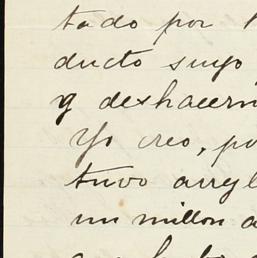 tado por
ducto suyo
y deshacern
Yo creo, po
tuvo arregl
un millon a